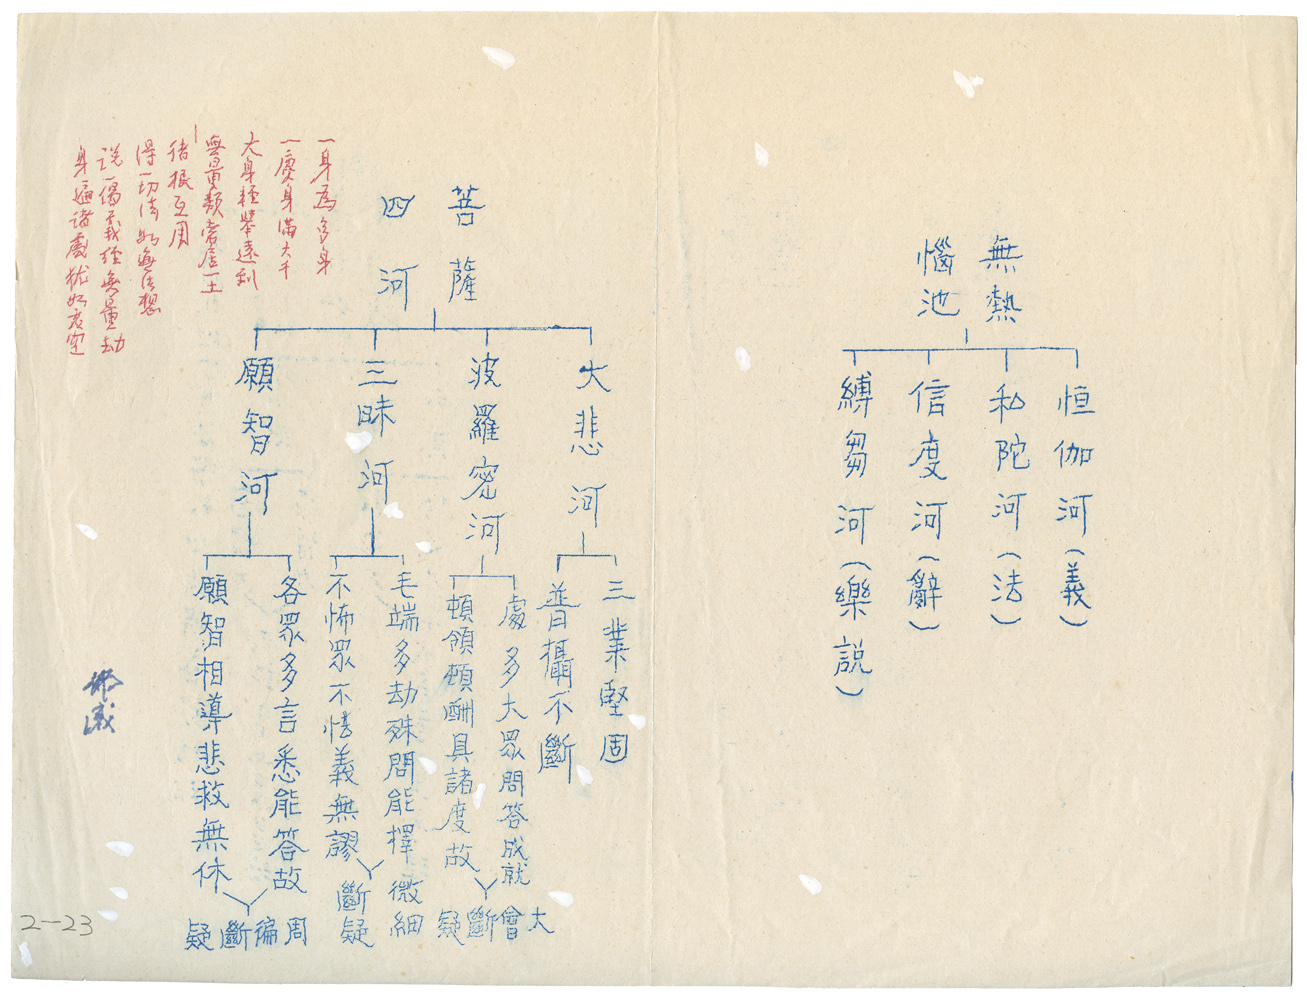 無熱
惱池
恒伽河(義)
私陀河(法)
信度河(辭)
縛芻河(樂說)
菩薩
四河
大悲河
三業堅固
普攝不斷
波羅密河
處多大眾問答成就
頓領頓酬具諸度故
大會斷疑
三昧河
毛端多劫殊問能擇
不怖眾不怯義無謬
微細
斷疑
願智河
各眾多言悉能答故
願智相導悲救無休
周徧斷疑
一身為多身
一處身滿大千
大身輕舉遠到
無量類常居一土
諸根互用
得一切法如無法想
說一偈義經無量劫
身遍諸處猶如虛空
2-23